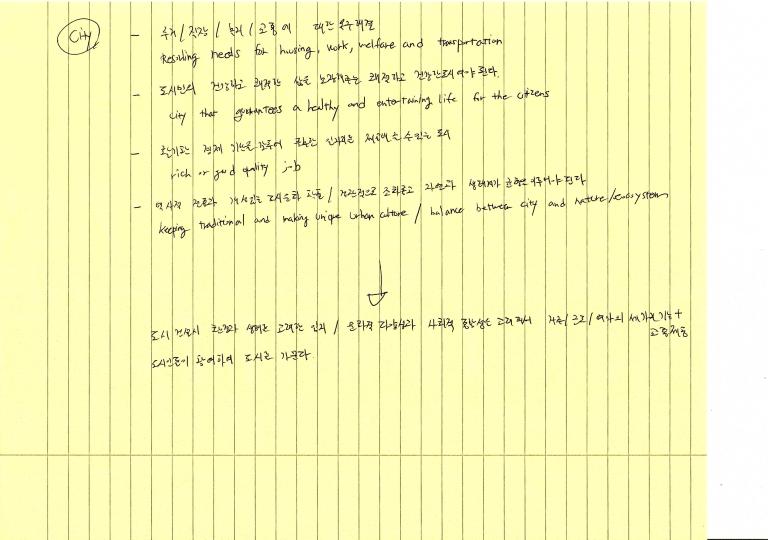 City
- 주거 / 직장 / 복지 / 교통에 대한 욕구해결
Resulving needs for huusing, work, welfare and transportation
- 도시민의 건강하고 쾌적한 삶을 보장해주는 쾌적하고 건강한도시여야 된다.
City that guarantees a healthy and entertaining life for the citizens
- 경제 기반을 갖추어 풍부한 수 있는 도시
rich or good quality job
- 역사적 전통과 개성있는 도시문화 창출 / 경관적으로 조화롭고 자연과 생태계가 균형을 이루어야 된다
keeping traditional and making unique urban culture / balance between city and nature/ecosystem
도시 건설시 환경과 고려한 입지 / 문화적 다양성과 사회적 고려해서 거주/근로/여가의 세가지 기능 +
교통체증
도시민들이 참여하여 도시를 가꾼다.